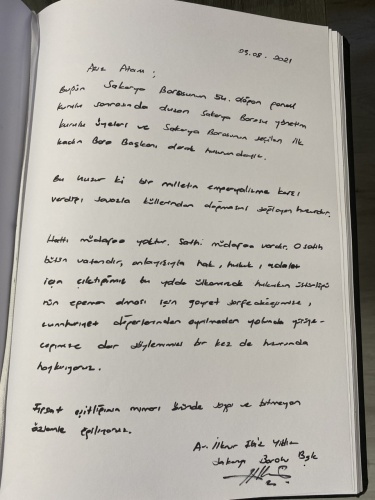 09.08.2021
Aziz Atam;
Bugün Sakarya Barosunun 54. olağan genel
kurulu sonrasında Sakarya Barosu yönetim
kurulu üyeleri ve Sakarya Barosunun seçilen ilk
kadın Baro Başkanı olarak huzurundayız.
Bu huzur ki bir milletin emperyalizme karşı
verdiği savaşla küllerinden doğmasını sağlayan huzurdur.
Hattı müdafaa yoktur. Sathı müdafaa vardır. O satıh
bütün vatandır, anlayışıyla hak, hukuk, adalet
için çıktığımız bu yolda ülkemizde hukukun üstünlüğü
nün egemen olması için gayret sarfedeceğimize,
cumhuriyet değerlerinden ayrılmadan yolunda yürüye-
ceğimize dair bir kez de huzurunda
haykırıyoruz.
Fırsat eşitliğinin mimarı önünde saygı ve bitmeyen
özlemle eğiliyoruz.
Av. İlknur
Sakarya Barosu Bşk